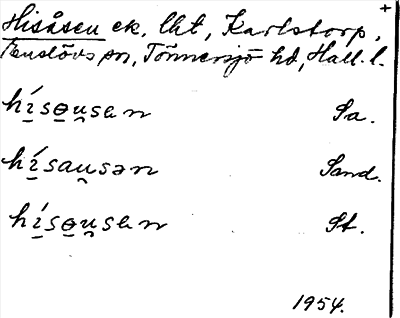 +
Hisåsen ek. lht, Karlstorp,
Enslövs sn, Tönnersjö hd, Hall. l.
hí̱sɵ̱u̯sen Sa.
hí̱sau̯sən Sand.
hí̱sɵ̱u̯sen St.
1954.